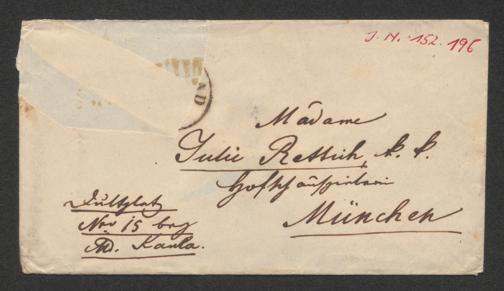 J. N. 152.196
Madame
Julie Rettich, k. k.
Hofschauspielerin
München
Dultplatz
Nro 15 bey
Md. Kaula.